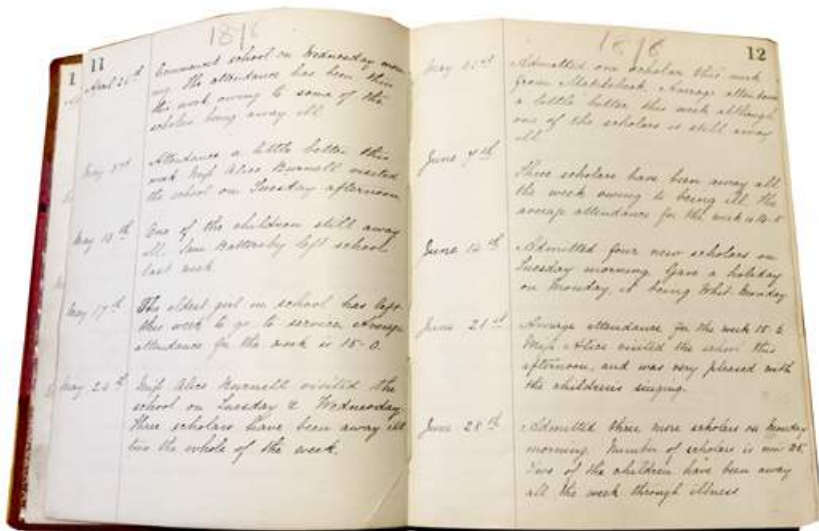 1878
11
April 26th Commenced school on Wednesday morn
ing. The attendance has been thin
this week owing to some of the
scholars being away ill
May 3rd Attendance a little better this
week Miss Alice Burnell visited
the school on Tuesday afternoon
May 10th One of the children still away
ill. Battersby left school
last week
May 17th The eldest girl in school has left
this week to go to service. Average
attendance for the week is 15-0.
May 24th Miss Alice Burnell visited the
school on Tuesday & Wednesday.
Three scholars have been away ill
two the whole of the week.
1878
12
May 31st Admitted one scholar this week
from Average attendance
a little better this week although
one of the scholars is still away
ill
June 7th
Three scholars have been away all
the week owing to being ill the
average attendance for the week is
June 14th Admitted four new scholars on
Tuesday morning. Gave a holiday
on Monday, it being Whit Monday
June 21st Average attendance for the week
Miss Alice visited the school this
afternoon, and was very pleased with
the childrens singing.
June 28th Admitted three more scholars on Monday
morning. Number of scholars is now 25.
Two of the children have been away
all the week through illness